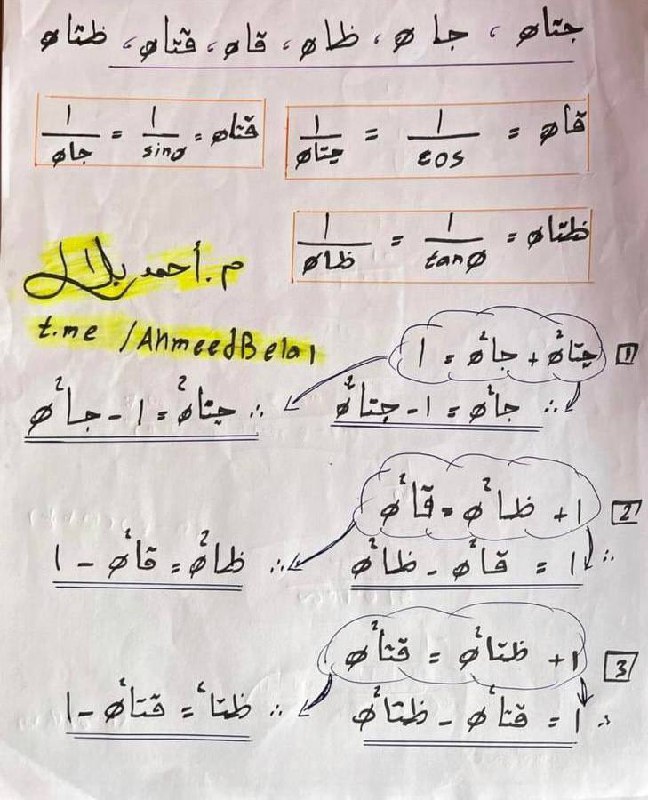 جتاه ، جاه ، ظاه ، قاه ، قتاه ، ظتاه
قاه = 1/cos = ١/جتاه
قتاه = 1/sinø = ١/جاه
ظتاه = 1/tanø = ١/ظاه
م. أحمد بلال
t.me/AhmeedBelal
1 جتا²ه + جا²ه = ١
∴ جا²ه = ١ - جتا²ه
∴ جتا²ه = ١ - جا²ه
2 ١ + ظا²ه = قا²ه
∴ ١ = قا²ه - ظا²ه
∴ ظا²ه = قا²ه - ١
3 ١ + ظتا²ه = قتا²ه
∴ ١ = قتا²ه - ظتا²ه
∴ ظتا² = قتا²ه - ١